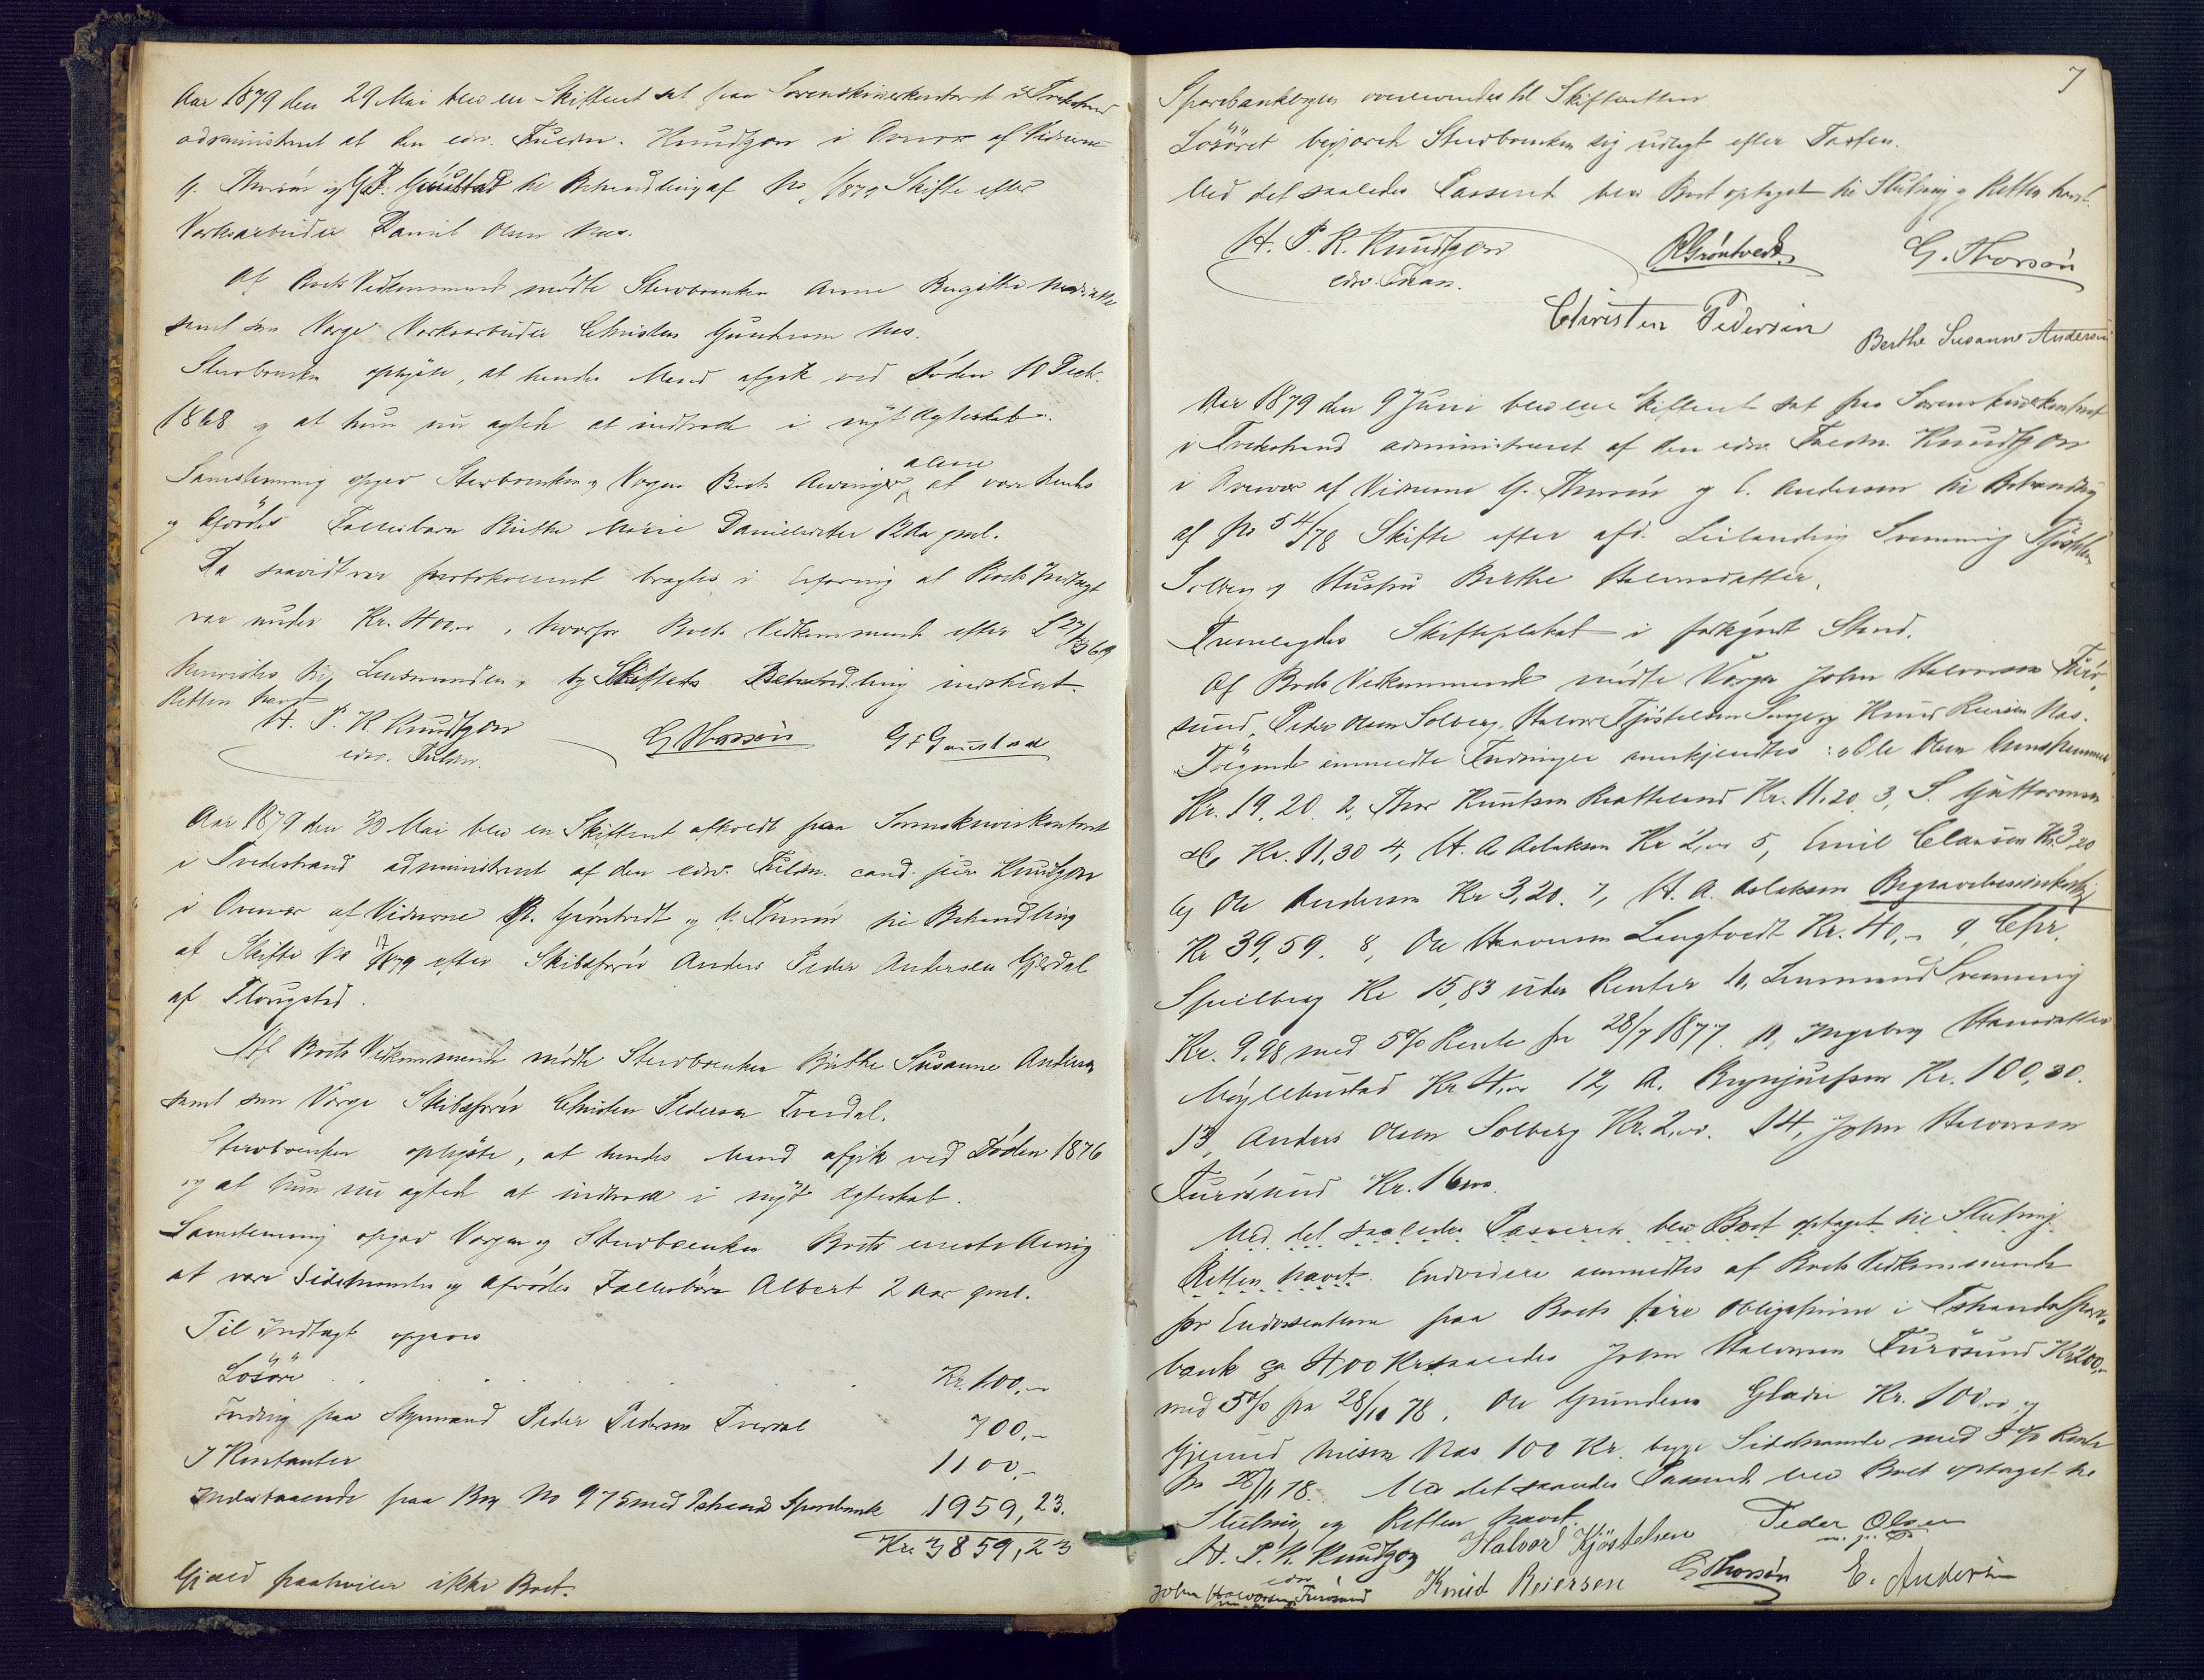 Aar 1879 den 29 Mai blev en Skifteret sat paa Sorenskriverkontoret i Tvedestrand
administreret af den edsv. Fuldm. Knudtzon i Overvær af Vidnerne
G. Thorsøn og G F. Gunstad til Behandling af No /1879 Skifte efter
Værksarbeider Daniel Olsen Næs.
Af Boets Vedkommende mødte Stervboenken Anne Birgitte
samt som Værge Værksarbeider Christen Gundersen Næs.
Stervboenken oplyste, at hendes Mand afgik ved Døden 10 Decbr.
1868 og at hun nu agtede at indtræde i nyt Ægteskab.
Samstemmig opgav Stervboenken og Værgen Boets Arvinger alene at være hendes
og Afdødes Fællesbarn Birthe Marie Danielsdatter 12 Aar gml.
Da saavidt var protokolleret bragtes i Erfaring at Boets Indtægt
var under Kr. 400,00, hvorfor Boets Vedkommende efter L 27/3 69
henvistes til Lensmanden, og Skiftets Behandling indstillet.
Retten hævet
H. P. K Knudtzon
edsv. Fuldm.
G Thorsøn
G F Gunstad
Aar 1879 den 30 Mai blev en Skifteret afholdt paa Sorenskriverkontoret
i Tvedestrand administreret af den edsv. Fuldm. cand. jur. Knudtzon
i Overvær af Vidnerne R. Grøntvedt og G. Thorsøn til Behandling
af Skifte No 17/1879 efter Skibsfører Anders Peder Andersen Gjerdal
af Flougstad.
Af Boets Vedkommende mødte Stervboenken Birthe Susanne Andersen
samt som Værge Skibsfører Christen Pedersen Tverdal.
Stervboenken oplyste, at hendes Mand afgik ved Døden 1876
og at hun nu agtede at indtræde i nyt Ægteskab.
Samstemmig opgav Værgen og Stervboenken Boets eneste Arving
at være Sidstnævntes og Afdødes Fællesbarn Albert 2 Aar gml.
Til Indtægt opgaves
Løsøre . . . . . Kr. 100,-
Fordring paa Styrmand Peder Pedersen Tverdal 700,-
I Kontanter 1100,-
Indestaaende paa Bog No 975 med Tstrands Sparebank 1959,23.
Kr. 3859,23
Gjæld paahviler ikke Boet.
7
Sparebankbogen overleveredes til Skifteretten
Løsøret begjærede Stervboenken sig udlagt efter Taxten.
Med det saaledes Passerede blev Boet optaget til Slutning og Retten hævet.
H. P. K. Knudtzon
edsv. Fm.
R Grøntvedt
G. Thorsøn
Christen Pedersen
Berthe Susanne Andersen
Aar 1879 den 9 Juni blev en Skifteret sat paa Sorenskriverkontoret
i Tvedestrand administreret af den edsv. Fuldm. Knudtzon
i Overvær af Vidnerne G. Thorsøn og E. Andersen til Behandling
af No 54/78 Skifte efter afd. Leilænding Svenning Tjøstelsen
Solberg og Hustru Berthe Halvorsdatter.
Fremlagdes Skifteplakat i forkyndt Stand.
Af Boets Vedkommende mødte Værgen John Halvorsen Furø-
sund, Peder Olsen Solberg, Halvor Tjøstelsen og Knud Reiersen Næs.
Følgende anmeldte Fordringer anerkjendtes: 1, Ole Olsen
Kr. 19,20. 2, Thor Knutsen Kr. 11.20 3, S. Guttormsen
& Co Kr. 11,30 4, H. A Aslaksen Kr 2,00 5, Emil Clausen Kr. 3,20
6, Ole Andersen Kr 3,20. 7, H. A. Aslaksen Begravelsesomkostninger
Kr 39,59. 8, Ole Halvorsen Langtvedt Kr. 40,- 9, Chr.
Speilberg Kr 15,83 uden Renter 10, Lensmand Svenning
Kr. 9,98 med 5% Rente fra 28/7 1877. 11, Ingeborg Hansdatter
Møglebustad Kr 4,00 12, A. Brynjulfsen Kr. 100,30.
13, Anders Olsen Solberg Kr. 2,00. 14, John Halvorsen
Furøsund Kr. 16,00.
Med det saaledes Passerede blev Boet optaget til Slutning
Retten hævet. Endvidere anmeldtes af Boets Vedkommende
for Endossenterne paa Boets fire Obligationer i Tstrands Spare-
bank 400 Kr saaledes John Halvorsen Furøsund Kr 200,-
med 5% fra 28/11 78, Ole Gundersen Gladu Kr. 100,00 og
Gjerud Nielsen Næs 100 Kr. begge Sidstnævnte med 5% Rente
fra 28/11 78. Med det saaledes Passerede blev Boet optaget til
Slutning og Retten hævet.
H. P. K. Knudtzon
edsv
Halvor Kjøstelsen
Peder Olsen
m. p. P.
John Halvorsen Furøsund
Knud Reiersen
G Thorsøn
E. Andersen